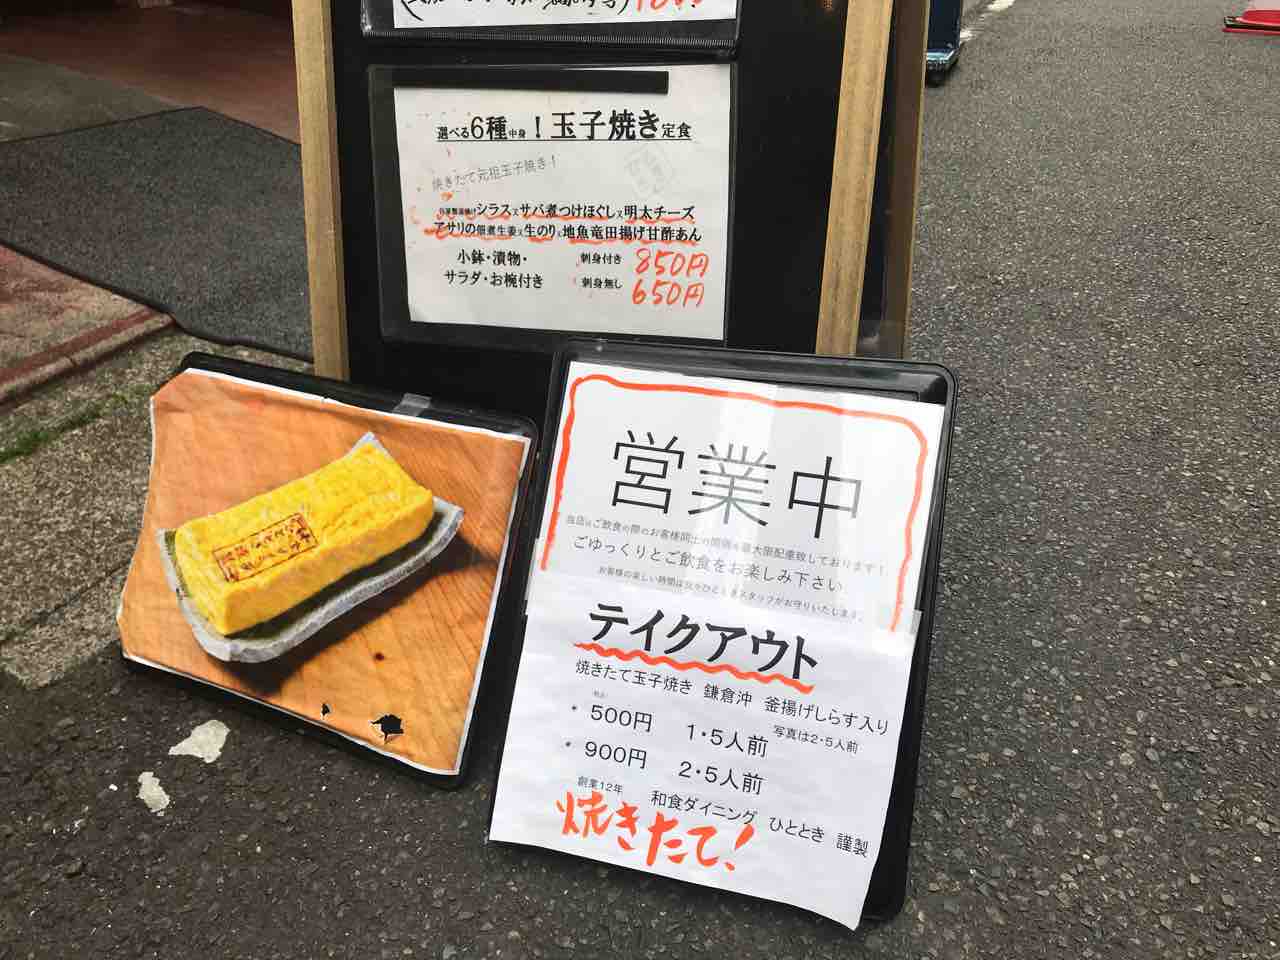 選べる6種中身!玉子焼き定食
焼きたて元祖玉子焼き!
シラス又サバ煮つけほぐし又明太チーズ
アサリの佃煮生姜又生のり又地魚竜田揚げ甘酢あん
小鉢・漬物・
サラダ・お椀付き
刺身付き 850円
刺身無し 650円
営業中
当店はご飲食の際のお客様同士の間隔を最大限配慮致しております!
ごゆっくりとご飲食をお楽しみ下さい
お客様の楽しい時間は我々ひとときスタッフがお守りいたします。
テイクアウト
焼きたて玉子焼き 鎌倉沖 釜揚げしらす入り
税込
* 500円 1・5人前 写真は2・5人前
* 900円 2・5人前
創業12年 和食ダイニング ひととき 謹製
焼きたて!